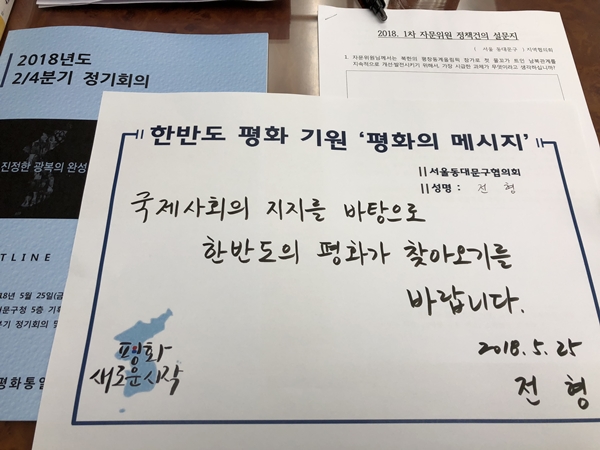 2018년도
2/4분기 정기회의
진정한 광복의 완성
TLINE
18년 5월 25일(금
대문구청 5층 기획
분기 정기회의 및
평화통일
2018. 1차 자문위원 정책건의 설문지
( 서울 동대문구 ) 지역협의회
1 자문위원님께서는 북한의 평창동계올림픽 참가로 첫 물꼬가 트인 남북관계를
지속적으로 개선발전시키기 위해서, 가장 시급한 과제가 무엇이라고 생각하십니까?
한반도 평화 기원 '평화의 메시지'
서울동대문구협의회
성명 : 전 형
국제사회의 지지를 바탕으로
한반도의 평화가 찾아오기를
바랍니다.
2018. 5. 25
전 형
평화
새로운시작